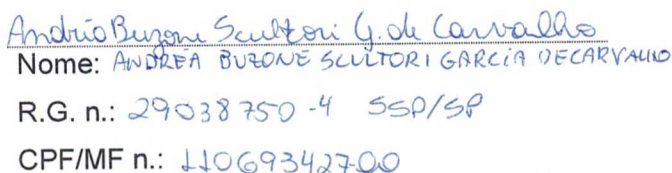 Andréa Buzone Scultori G. de Carvalho
Nome: ANDRÉA BUZONE SCULTORI GARCIA DECARVALHO
R.G. n.: 29038750-4 SSP/SP
CPF/MF n.: 11069342700